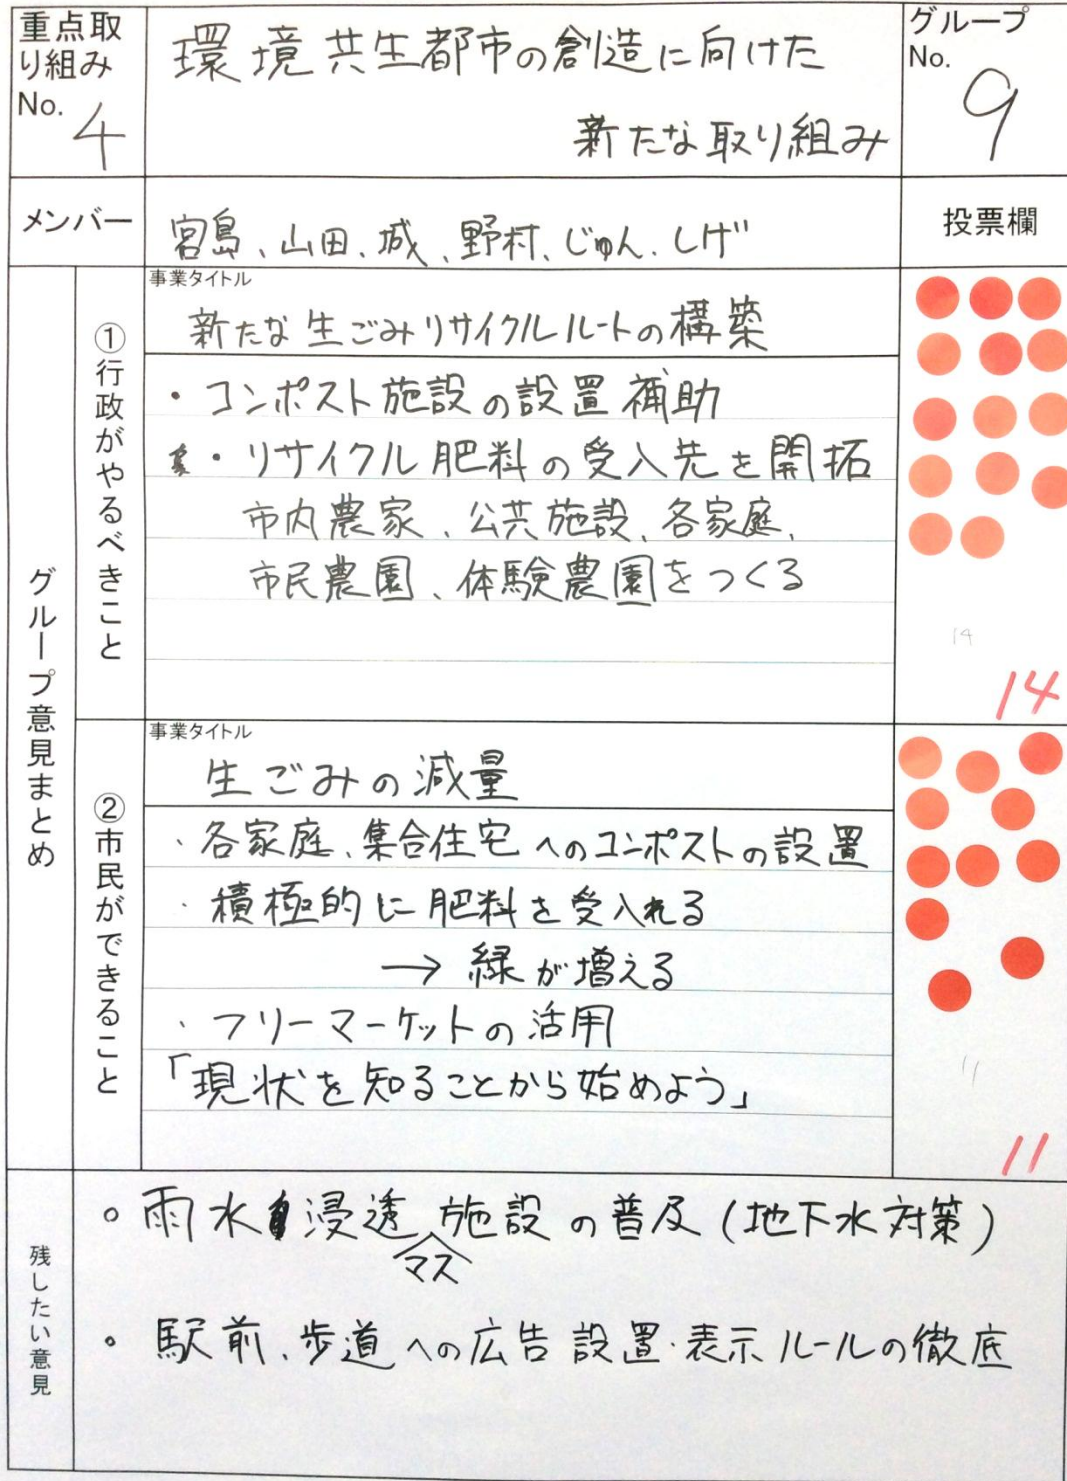 重点取
り組み
No. 4
環境共生都市の創造に向けた
新たな取り組み
グループ
No. 9
メンバー
宮島、山田、城、野村、じゅん、しげ
投票欄
グループ意見まとめ
①行政がやるべきこと
事業タイトル
新たな生ごみリサイクルルートの構築
・コンポスト施設の設置補助
・リサイクル肥料の受入先を開拓
市内農家、公共施設、各家庭、
市民農園、体験農園をつくる
14
14
②市民ができること
事業タイトル
生ごみの減量
・各家庭、集合住宅へのコンポストの設置
・積極的に肥料を受入れる
→ 緑が増える
・フリーマーケットの活用
「現状を知ることから始めよう」
11
11
残したい意見
○ 雨水浸透マス施設の普及(地下水対策)
○ 駅前、歩道への広告設置・表示ルールの徹底